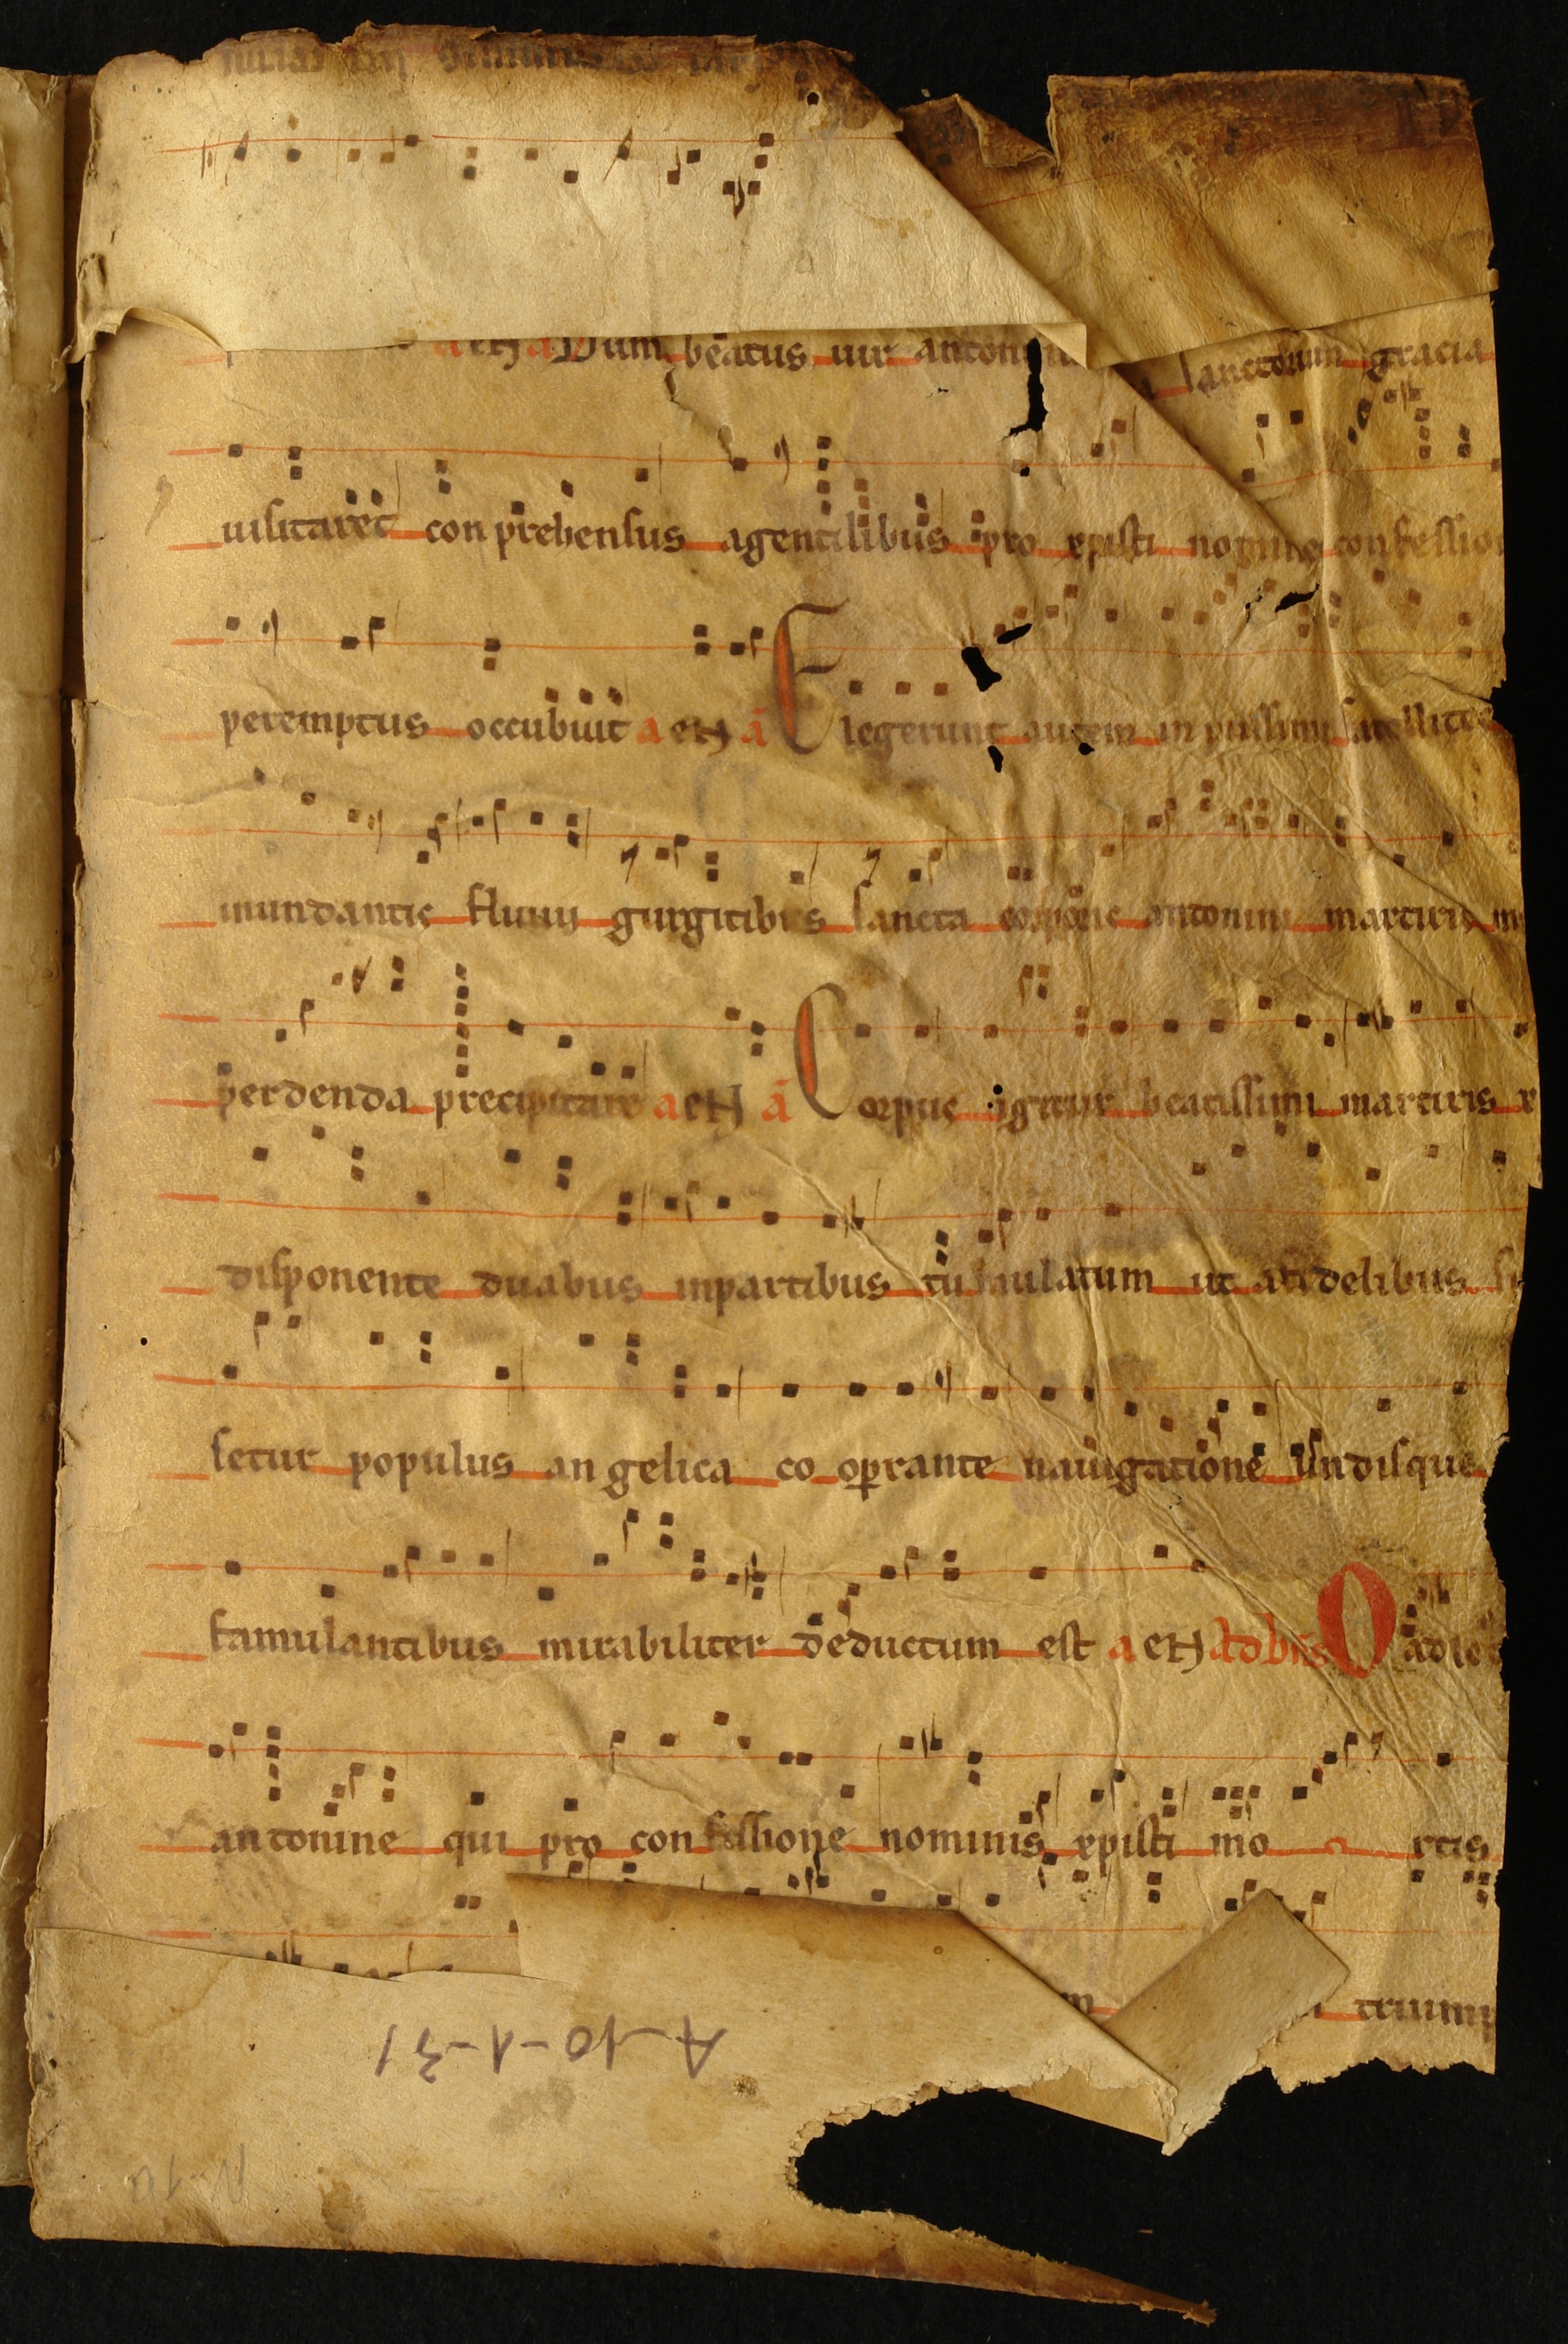 aeH a Dum beatus uir antoni
sanctorum gracia
uisitaret conprehensus agentilibus pro xpisti nomine confessio
peremptus occubuit aeH a Elegerunt autem inpiissimi satellites
inundantis fluuii gurgitibus sancta corporis antonini martiris m
perdenda precipitare aeH a Corpus igitur beatissimi martiris x
disponente duabus inpartibus tumulatum ut afidelibus
setur populus angelica cooperante nauigatione undisque
famulantibus mirabiliter deductum est aeH adbns O adlet
antonine qui pro confessione nominis xpisti mo rtis
m triump
A-10-1-31
N 10